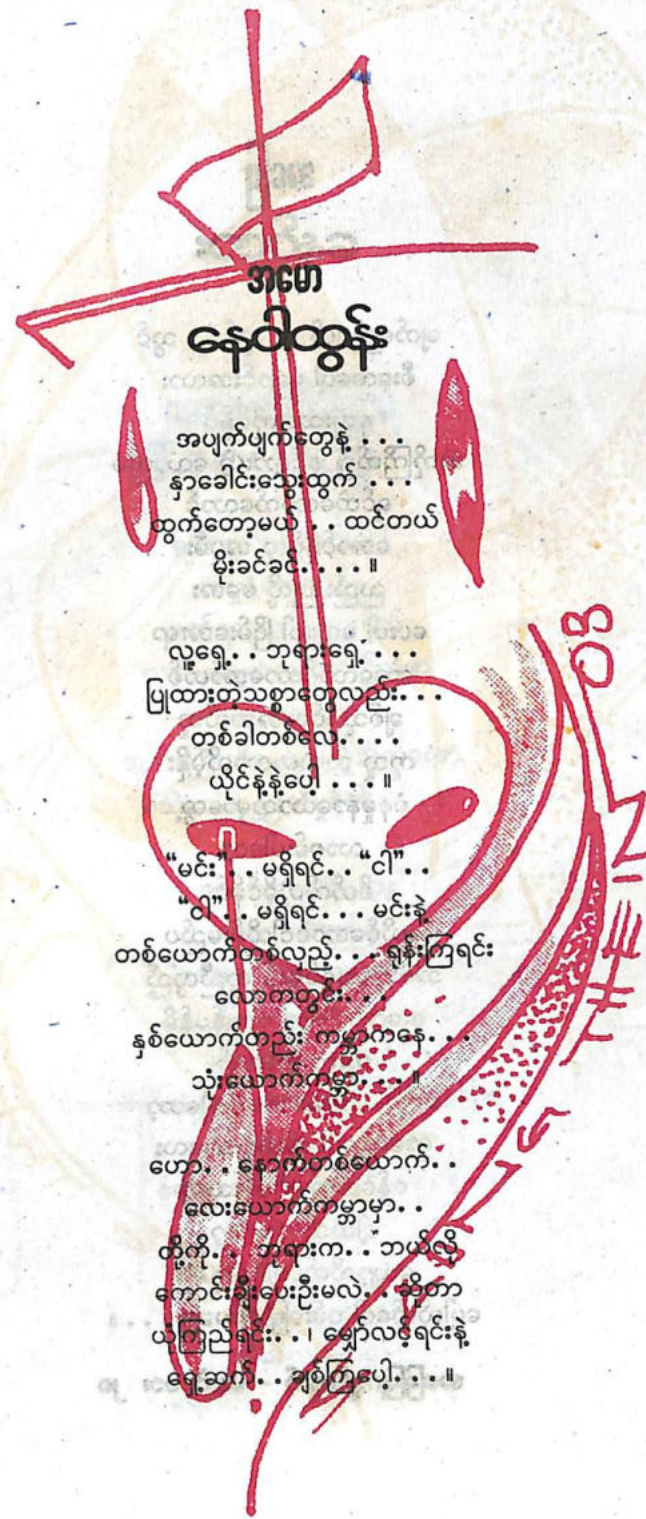 အမော
နေဝါထွန်း
အပျက်ပျက်တွေနဲ့ . . .
နှာခေါင်းသွေးထွက် . . .
ထွက်တော့မယ် . . ထင်တယ်
မိုးခင်ခင်. . . . ။
လူ့ရှေ့. . ဘုရားရှေ့. . . .
ပြုထားတဲ့သစ္စာတွေလည်း. . .
တစ်ခါတစ်လေ. . . .
ယိုင်နဲ့နဲ့ပေါ့ . . . ။
“မင်း”. . မရှိရင်. . “ငါ”. .
“ငါ”. . မရှိရင်. . . မင်းနဲ့
တစ်ယောက်တစ်လှည့်. . . ရုန်းကြရင်း
လောကတွင်း. . .
နှစ်ယောက်တည်း ကမ္ဘာကနေ. . .
သုံးယောက်ကမ္ဘာ. . . ။
ဟော. . နောက်တစ်ယောက်. .
လေးယောက်ကမ္ဘာမှာ. .
တို့ကို. . ဘုရားက. . ဘယ်လို
ကောင်းချီးပေးဦးမလဲ. . ဆိုတာ
ယုံကြည်ရင်း. . ၊ မျှော်လင့်ရင်းနဲ့
ရှေ့ဆက်. . ချစ်ကြပေါ့. . . . ။